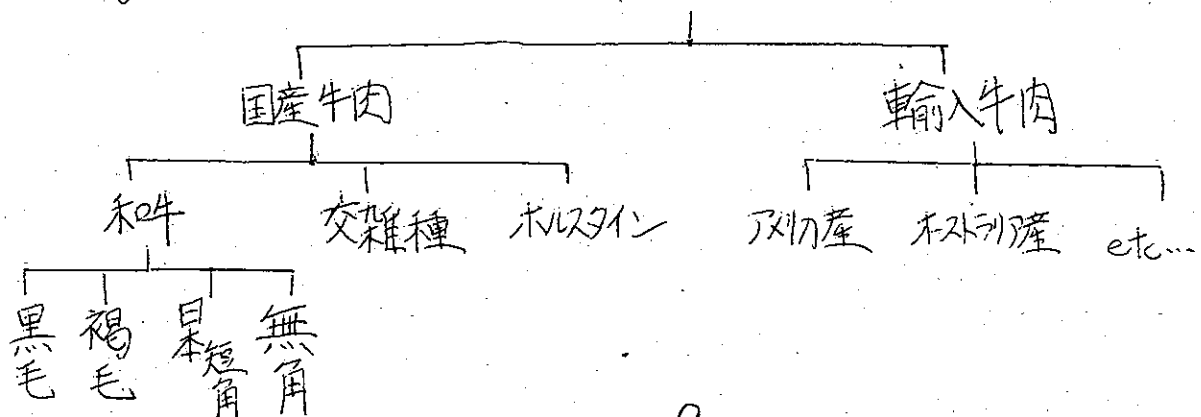 国産牛肉
輸入牛肉
和牛
交雑種
ホルスタイン
アメリカ産
オーストラリア産
etc...
黒毛
褐毛
日本短角
無角